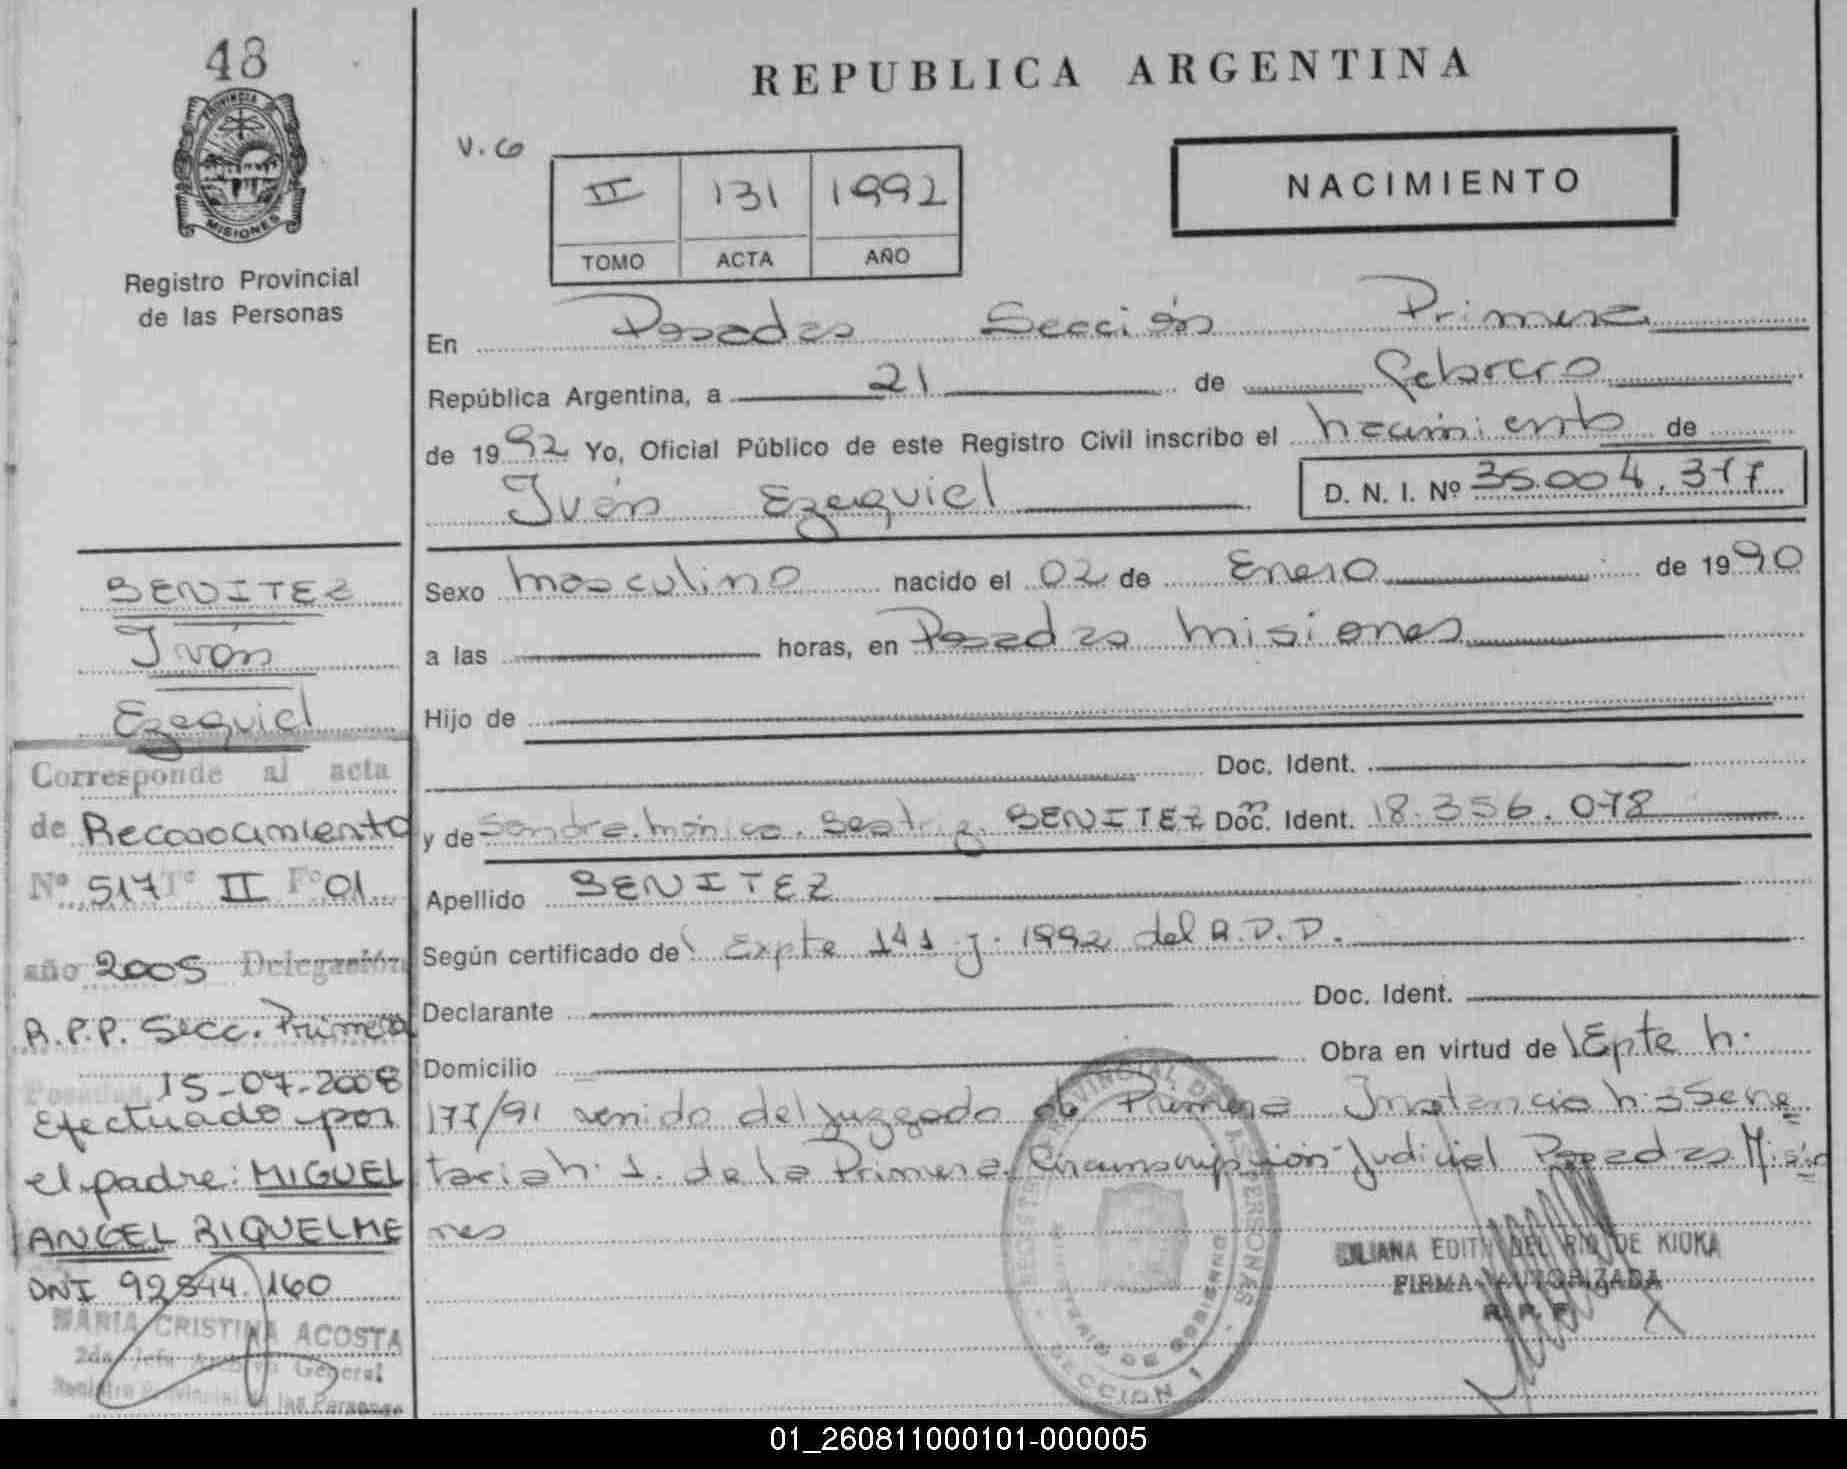 48
PROVINCIA
MISIONES
Registro Provincial
de las Personas
REPUBLICA ARGENTINA
V. G
II 131 1992
TOMO ACTA AÑO
NACIMIENTO
En Posadas Sección Primera
República Argentina, a 21 de febrero
de 1992 Yo, Oficial Público de este Registro Civil inscribo el nacimiento de
Iván Ezequiel D. N. I. Nº 35.004.377
Sexo masculino nacido el 02 de Enero de 1990
a las horas, en Posadas Misiones
Hijo de
Doc. Ident.
y de Sandra Mónica Beatriz BENITEZ Doc. Ident. 18.356.078
Apellido BENITEZ
Según certificado de Expte 141 J. 1992 del R.D.D.
Declarante Doc. Ident.
Domicilio Obra en virtud de Epte N.
177/91 venido del Juzgado de Primera Instancia N. 3 Secre
taria N. 1. de la Primera Circunscripción Judicial Posadas Misio
nes
LILIANA EDITH DEL RIO DE KIUKA
FIRMA AUTORIZADA
R. P. P.
SECCION 1
BENITEZ
Iván
Ezequiel
Corresponde al acta
de Reconocimiento
Nº 517 Tº II Fº 01
año 2005 Delegación
R.P.P. Secc. Primera
Posadas, 15-07-2008
Efectuado por
el padre: MIGUEL
ANGEL RIQUELME
DNI 92844.160
MARIA CRISTINA ACOSTA
2da. Jefa Archivo General
Registro Provincial de las Personas
01_260811000101-000005